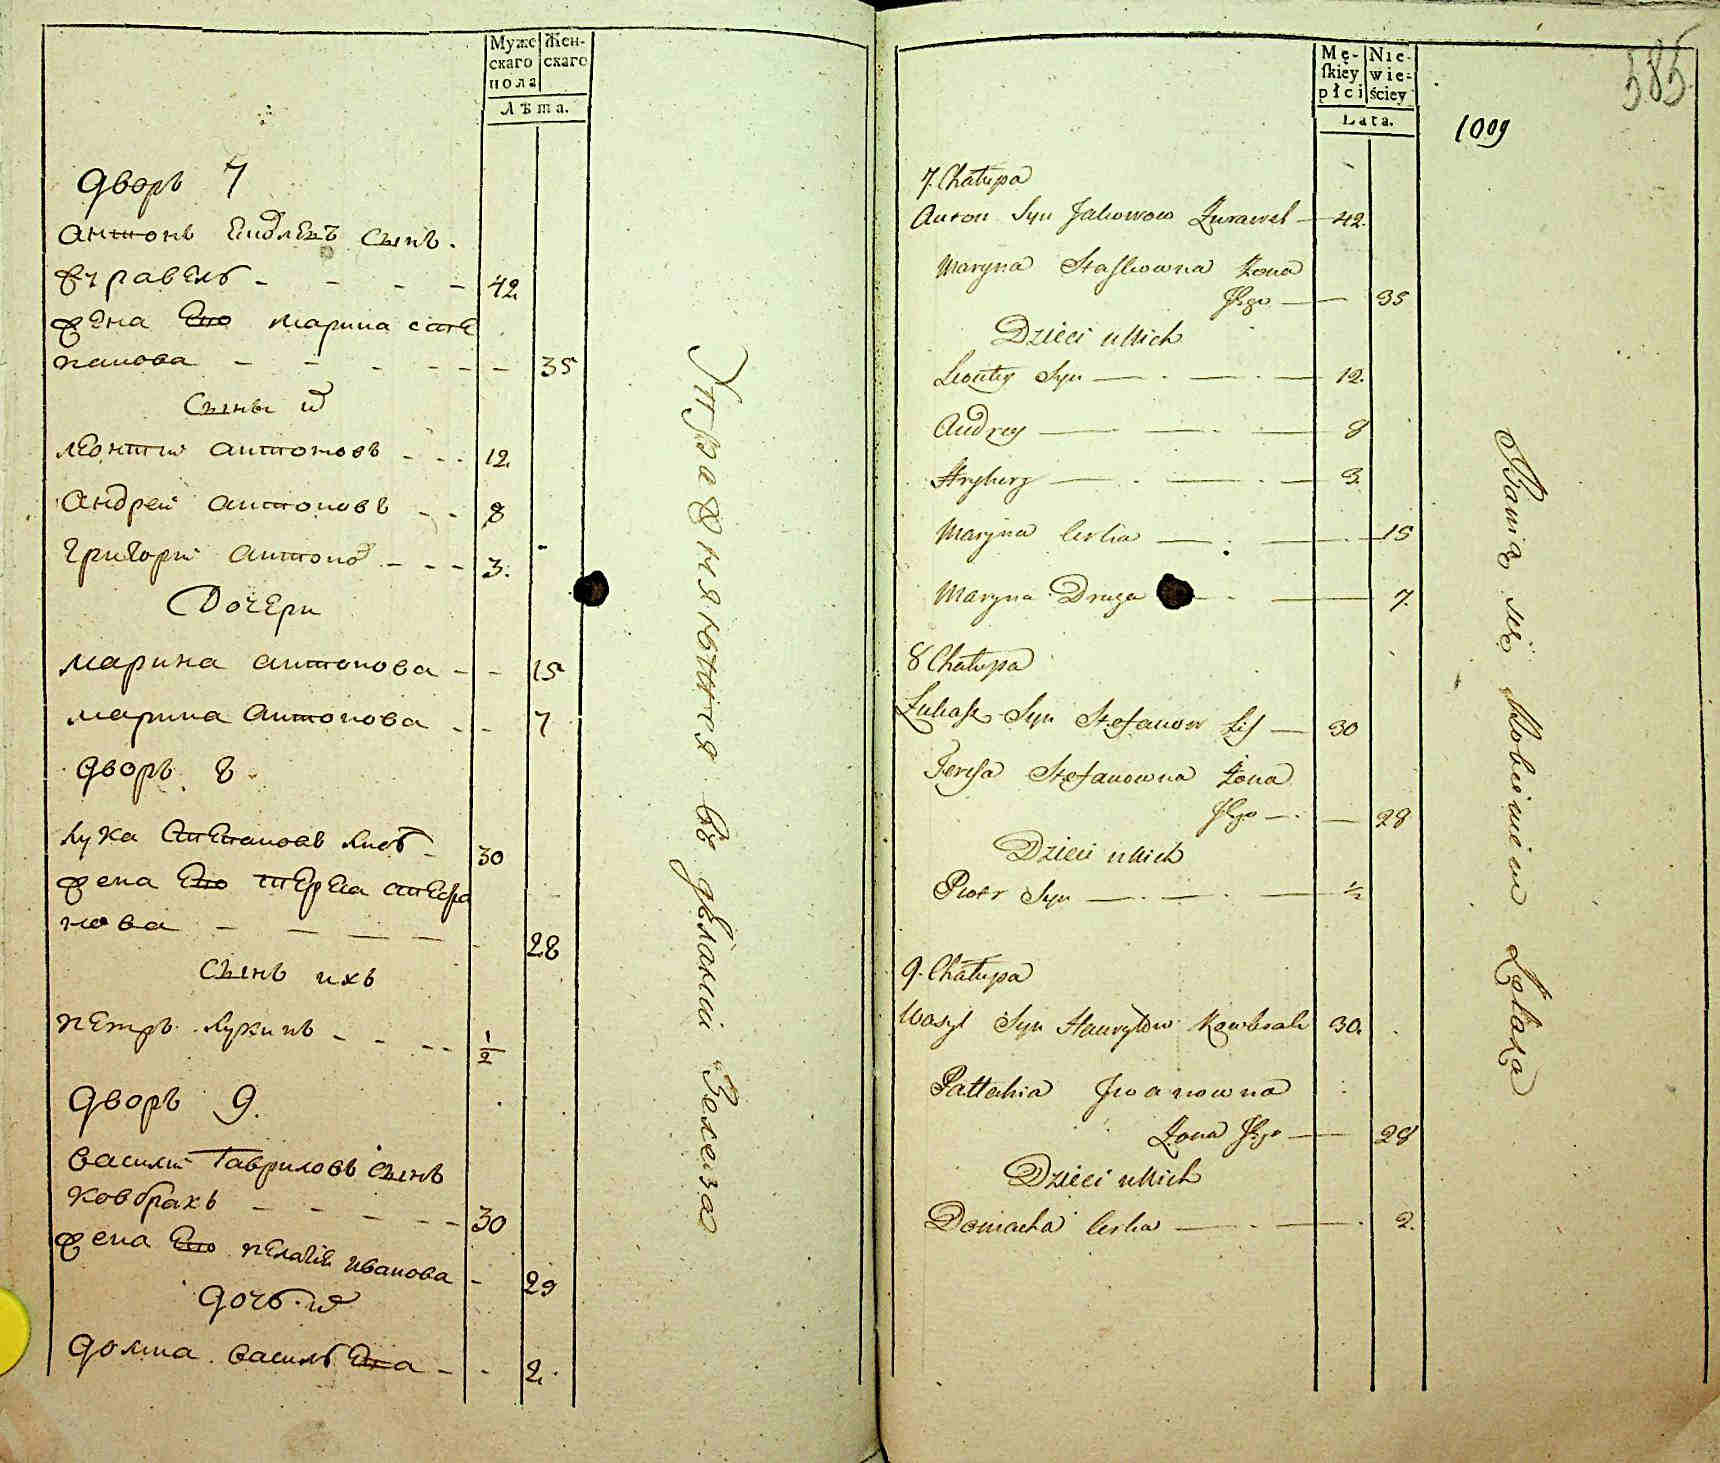 Муже
скаго
пола
Жен-
скаго
Лѣта.
дворъ 7
Антонъ сынъ.
журавель - - - - 42
жена Его марина сте
панова - - - - - - 35
Сыны их
леонтий антоновъ - - - 12.
Андрей антоновъ - - 8
григорий антонов - - - 3.
Дочери
марина антонова - - 15
марина антонова - - 7
дворъ 8
лука Степановъ лисъ - 30
жена Его тереса стефа
нова - - - - - 28
Сынъ ихъ
петръ лукинъ - - - - 1/2
дворъ 9.
василий Гавриловъ сынъ
ковбрахъ - - - - - 30
жена Его пелагия иванова - 29
дочь их
домна василь Ева - - 2.
Упражняются въ деланий Железа
Mę-
ſkiey
płci
Nie-
wie-
ściey
Lata.
385.
1009
7. Chałupa
Anton Syn Jakowow Żurawel — 42.
Maryna Staſkowna Żona
Jego — — 35
Dzieci u Nich
Leonty Syn — — · — 12.
Andrey — — · — 8
Hryhory — · — · — 3.
Maryna Corka — · — · — 15
Maryna Druga — — 7.
8 Chałupa
Łukaſz Syn Stefanow Liſ — 30
Tereſa Stefanowna Żona
Jego — · — 28
Dzieci u Nich
Piotr Syn — · — · — 1/2
9. Chałupa
Wasyl Syn Hawryłow Kowbrach 30.
Pałłahia Jwanowna
Żona Jego — 28
Dzieci u Nich
Domicela Corka — · — · 2.
Bawią się Robieniem Żelaza